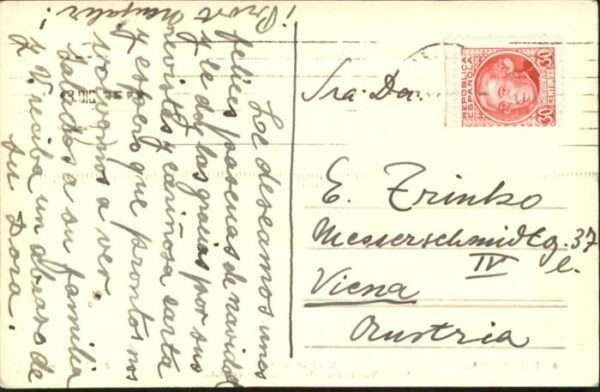 Le deseamos unas
felices pascuas de navidad
y le doy las gracias por sus
revistas y cariñosa carta
y espero que prontos nos
volvemos a ver.
Saludos a su familia
y V. reciba un abraso de
su Dora.
¡Prost Neujahr!
Sra Da.
E. Trinko
Messerschmidtg. 37
IV
Viena
Austria
REPUBLICA
ESPAÑOLA
30
30